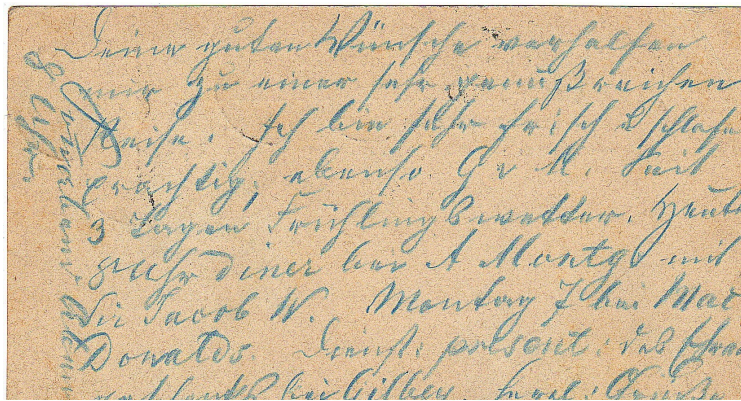 Deine guten Wünsche verhalfen
mir zu einer sehr genußreichen
Reise. Ich bin sehr frisch & schlafe
prächtig, ebenso G v M. Seit
3 Tagen Frühlingswetter. Heute
8 Uhr diner bei A Montg mit
Sir Jacob W. Montag 7 bei Mac
Donalds. Dienst: présent: des
bei Gilbey. Grüße
8 Uhr